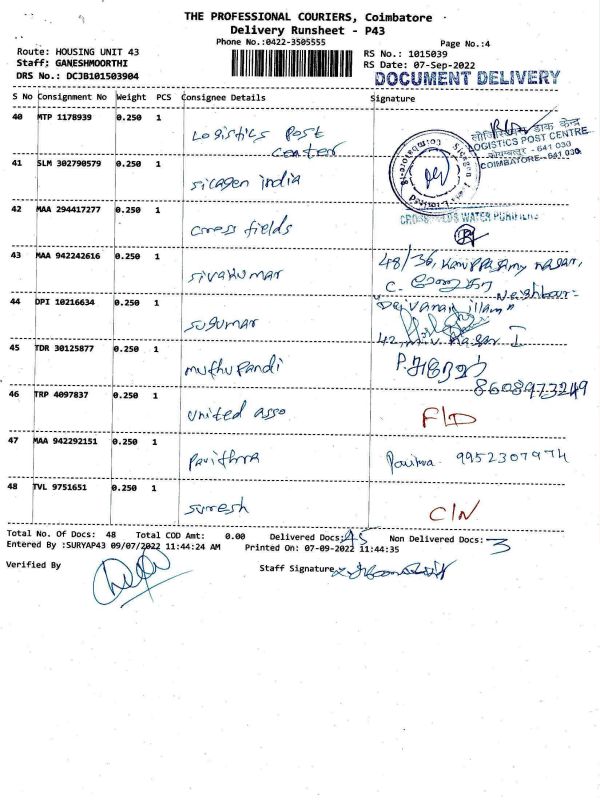 THE PROFESSIONAL COURIERS, Coimbatore
Delivery Runsheet - P43
Phone No.:0422-3505555
Page No.:4
Route: HOUSING UNIT 43
RS No.: 1015039
Staff; GANESHMOORTHI
RS Date: 07-Sep-2022
DRS No.: DCJB101503904
DOCUMENT DELIVERY
S No Consignment No Weight PCS Consignee Details Signature
40 MTP 1178939 0.250 1 Logistics Post Center
लॉजिस्टिक्स डाक केन्द्र
LOGISTICS POST CENTRE
कोयम्बत्तूर - 641 030
COIMBATORE - 641 030
41 SLM 302790579 0.250 1 Sicagen india
Sicagen India Limited Coimbatore
42 MAA 294417277 0.250 1 cross fields
CROSS FIELDS WATER PURIFIERS
43 MAA 942242616 0.250 1 sivakumar
48/36, Kanippasamy nagar,
Neighbour-
44 DPI 10216634 0.250 1 sugumar
"Deivanai illam"
42, M.V. Nagar I
45 TDR 30125877 0.250 1 muthupandi
8608973249
46 TRP 4097837 0.250 1 united asso F/D
47 MAA 942292151 0.250 1 pavithra Pavithra 9952307974
48 TVL 9751651 0.250 1 suresh C/N
Total No. Of Docs: 48 Total COD Amt: 0.00 Delivered Docs: 45 Non Delivered Docs: 3
Entered By :SURYAP43 09/07/2022 11:44:24 AM Printed On: 07-09-2022 11:44:35
Verified By
Staff Signature